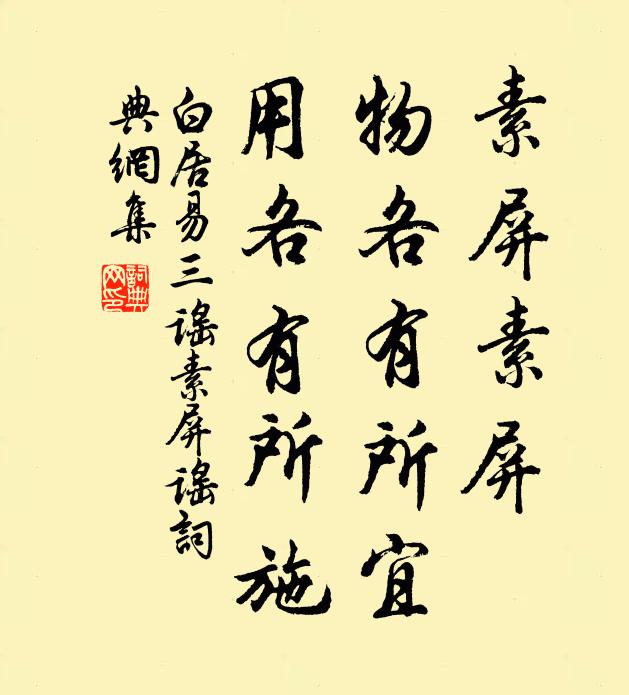 素屏素屏
物各有所宜
用各有所施
白居易三謠素屏謠詞
典網集
詞典
网印